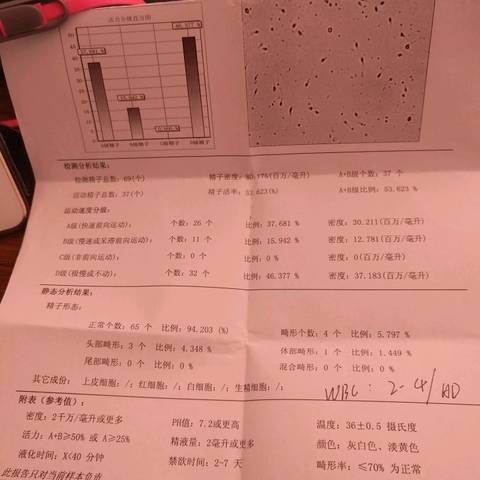 活力分级直方图
37.681 %
15.942 %
0.000 %
46.377 %
50
40
30
20
10
0
A级精子 B级精子 C级精子 D级精子
检测分析结果:
检测精子总数: 69(个) 精子密度: 80.175(百万/毫升) A+B级个数: 37 个
活动精子总数: 37(个) 精子活率: 53.623(%) A+B级比例: 53.623 %
运动速度分级:
A级(快速前向运动): 个数: 26 个 比例: 37.681 % 密度: 30.211(百万/毫升)
B级(慢速或呆滞前向运动): 个数: 11 个 比例: 15.942 % 密度: 12.781(百万/毫升)
C级(非前向运动): 个数: 0 个 比例: 0 % 密度: 0(百万/毫升)
D级(极慢或不动): 个数: 32 个 比例: 46.377 % 密度: 37.183(百万/毫升)
静态分析结果:
精子形态:
正常个数: 65 个 比例: 94.203 (%) 畸形个数: 4 个 比例: 5.797 %
头部畸形: 3 个 比例: 4.348 % 体部畸形: 1 个 比例: 1.449 %
尾部畸形: 0 个 比例: 0 % 混合畸形: 0 个 比例: 0 %
其它成份: 上皮细胞: /; 红细胞: /; 白细胞: /; 生精细胞: /; WBC: 2-4/HD
附表(参考值):
密度: 2千万/毫升或更多 PH值: 7.2或更高 温度: 36±0.5 摄氏度
活力: A+B≥50% 或 A≥25% 精液量: 2毫升或更多 颜色: 灰白色、淡黄色
液化时间: X<40 分钟 禁欲时间: 2~7 天 畸形率: ≤70% 为正常
此报告只对当前样本负责